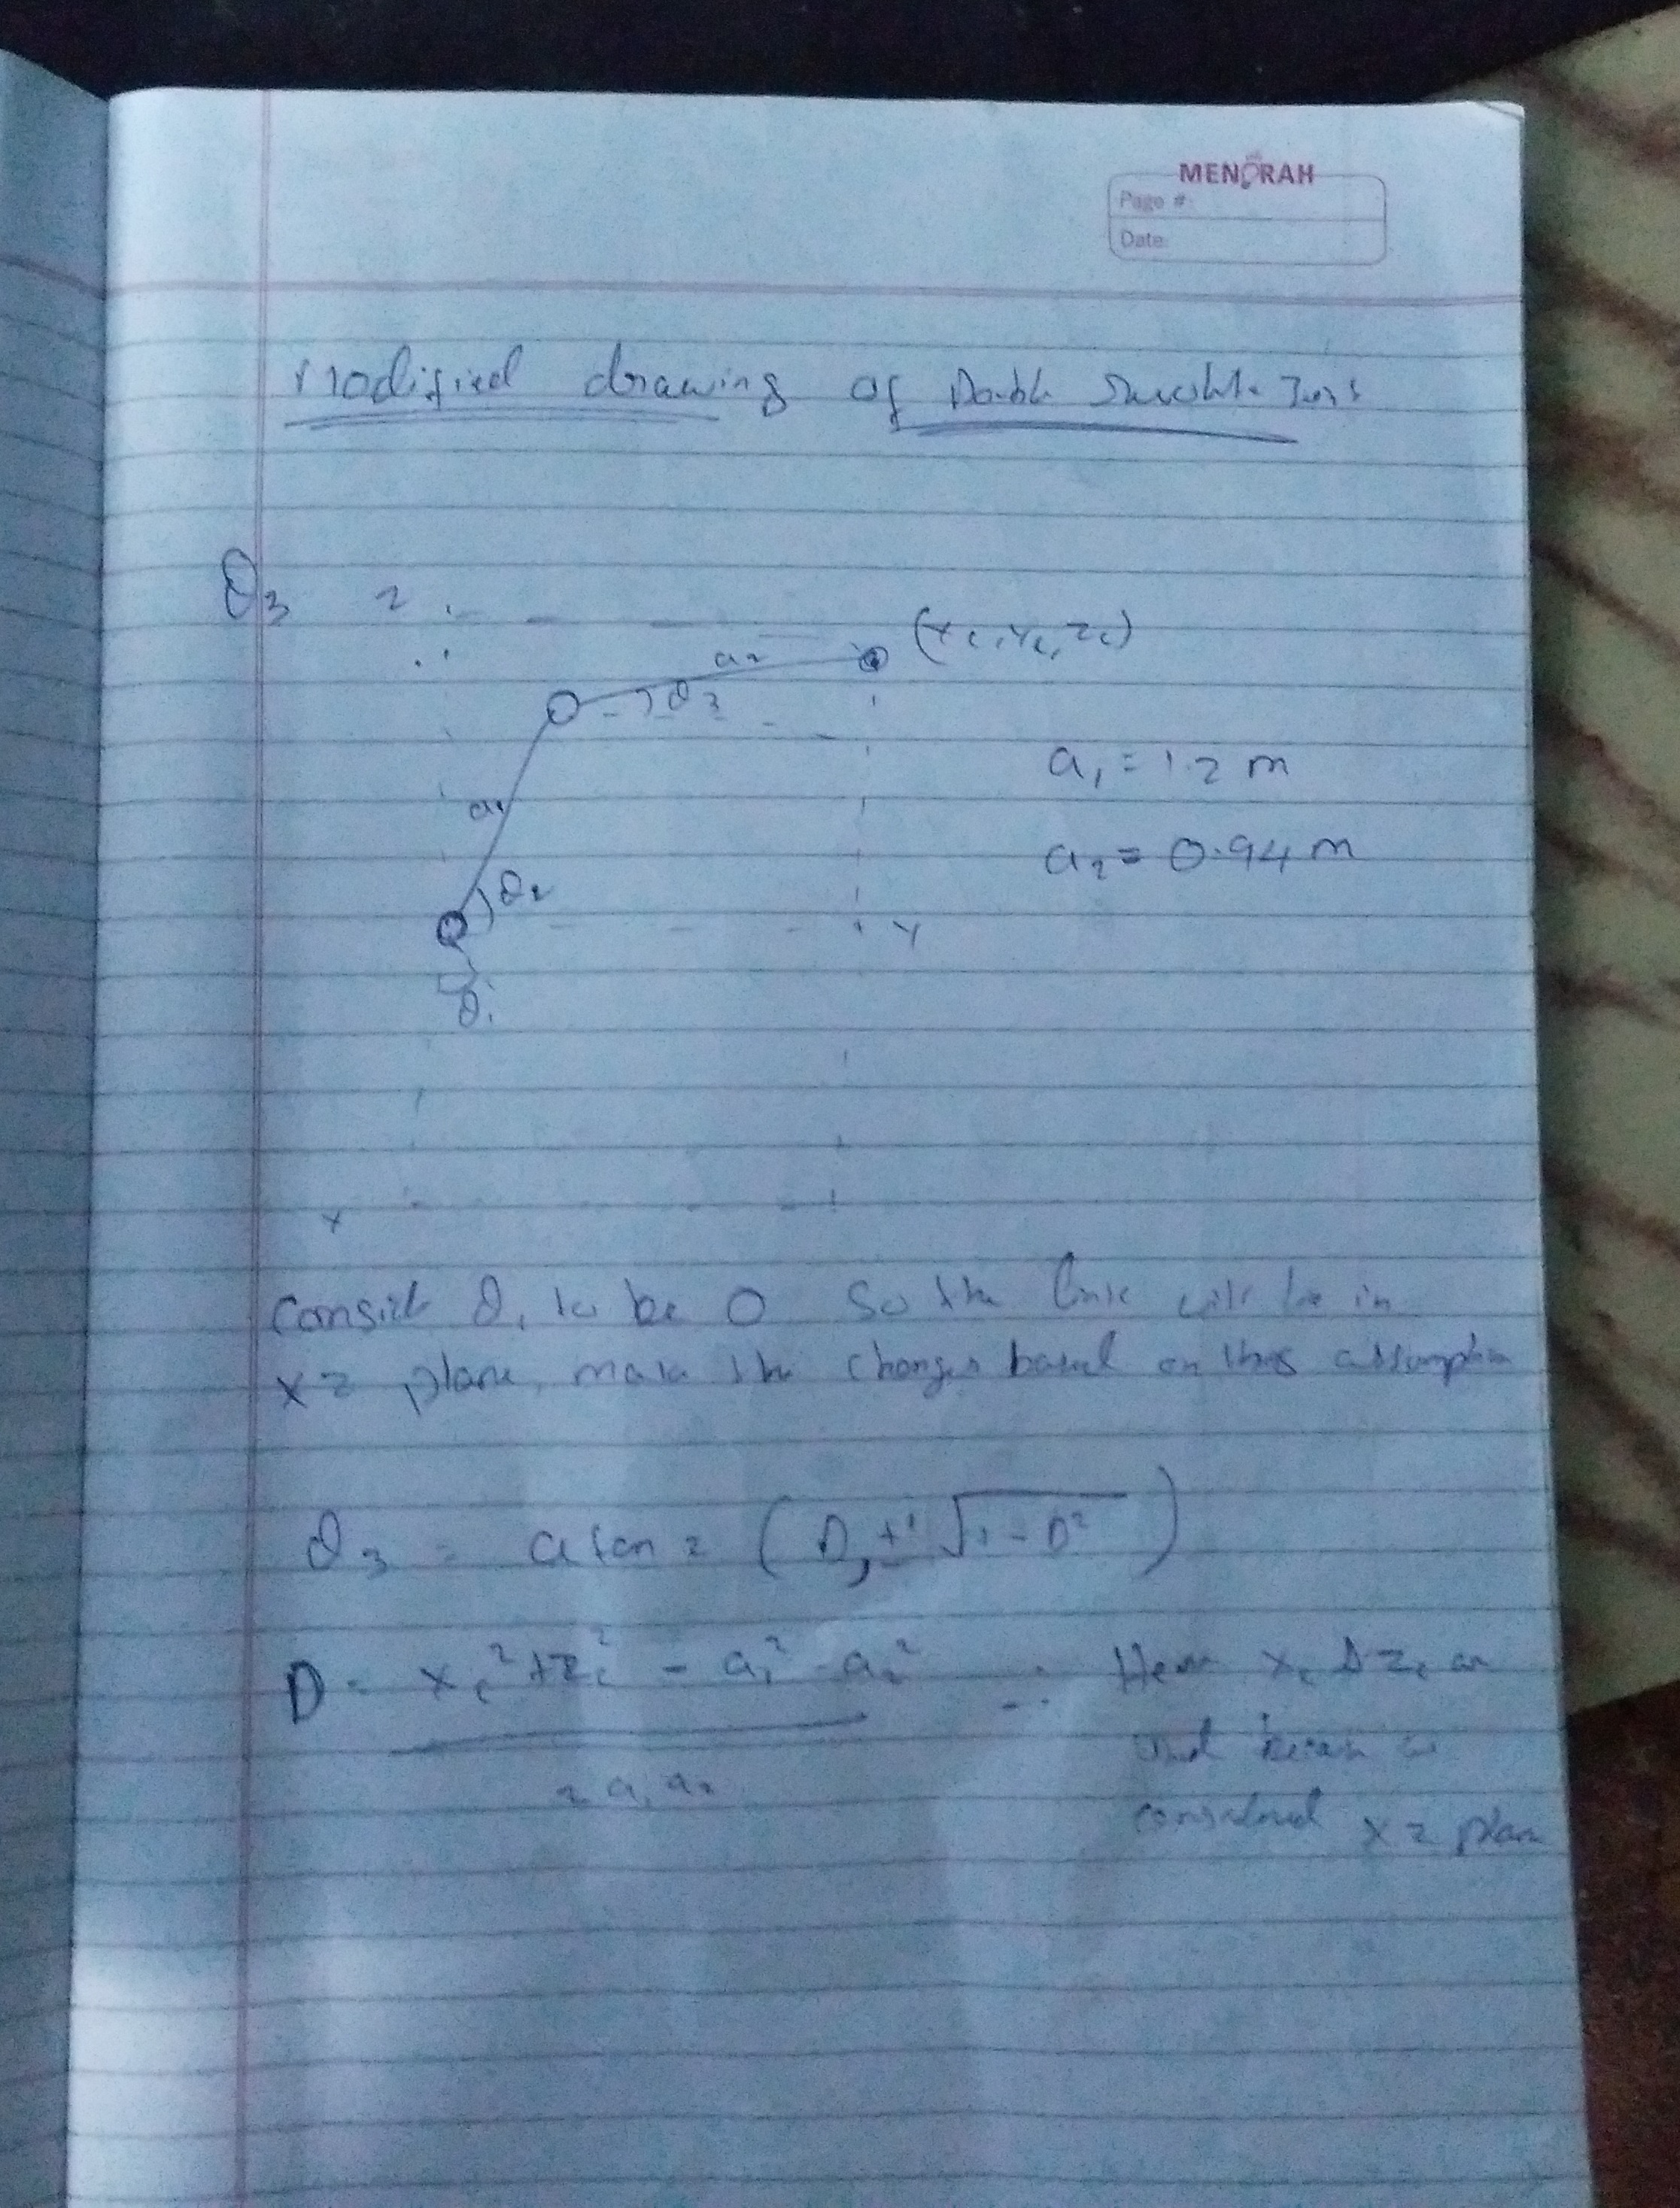 MENORAH
Page #:
Date:
Modified drawing of Double
θ3 z (xc, yc, zc)
a2
θ3
a1 = 1.2 m
a1
a2 = 0.94 m
θ2
Y
θ1
x
θ1 to be 0 So the link will be in
xz plane, make the changes based on this assumption
θ3 = atan2 (D, ± √1 - D²)
D = xc² + zc² - a1² - a2² Here xc & zc are
2 a1 a2
considered xz plane